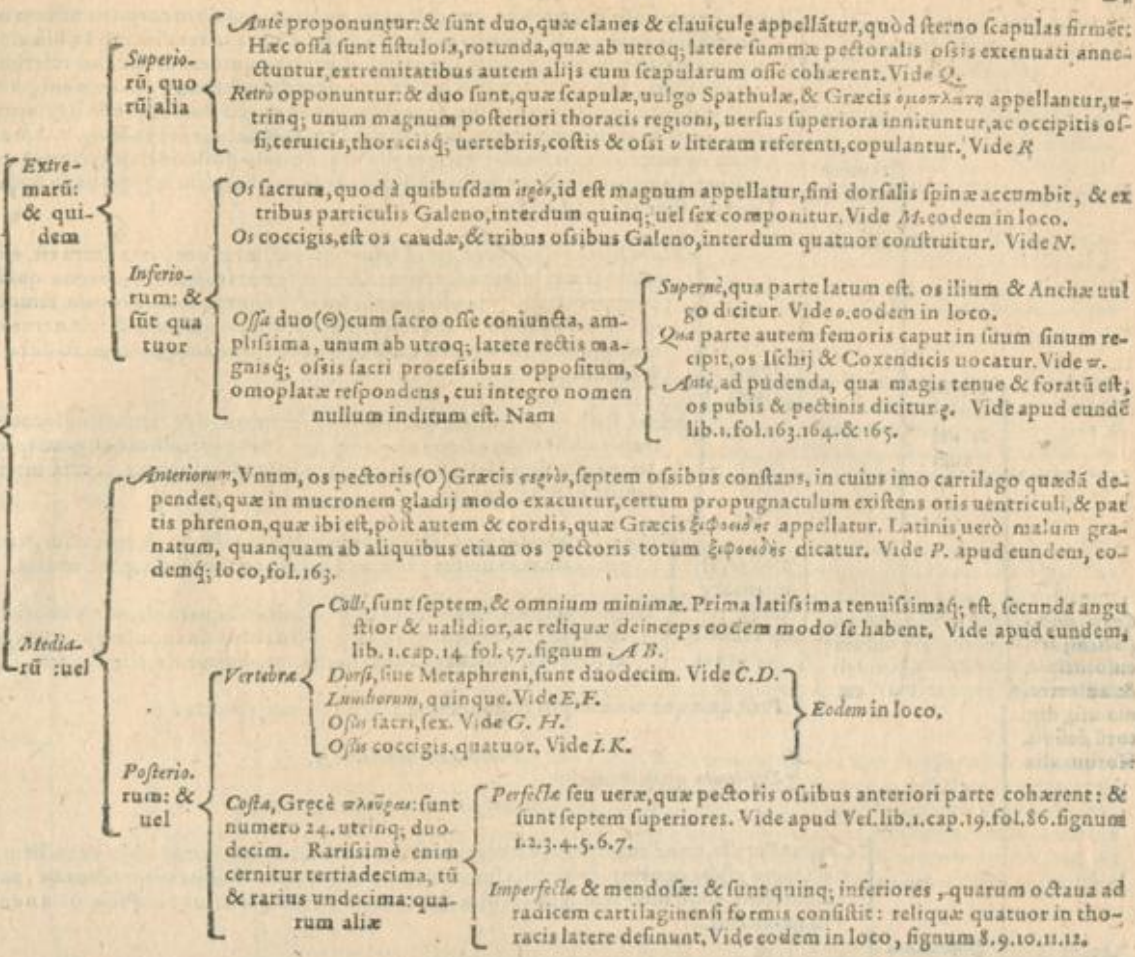 Antè proponuntur: & sunt duo, quæ claues & clauiculę appellãtur, quòd sterno scapulas firmēt:
Hæc ossa sunt fistulosa, rotunda, quæ ab utroq; latere summæ pectoralis ossis extenuati anne-
ctuntur, extremitatibus autem alijs cum scapularum osse cohærent. Vide Q.
Superio-
rũ, quo
rũ, alia
Retrò opponuntur: & duo sunt, quæ scapulæ, uulgo Spathulæ, & Græcis ὠμοπλάται appellantur, u-
trinq; unum magnum posteriori thoracis regioni, uersus superiora innituntur, ac occipitis os-
si, ceruicis, thoracisq́; uertebris, costis & ossi υ literam referenti, copulantur. Vide R
Extre-
marũ:
& qui-
dem
Os sacrum, quod à quibusdam ἱερὸν, id est magnum appellatur, fini dorsalis spinæ accumbit, & ex
tribus particulis Galeno, interdum quinq; uel sex componitur. Vide M. eodem in loco.
Os coccigis, est os caudæ, & tribus ossibus Galeno, interdum quatuor construitur. Vide N.
Inferio-
rum: &
sũt qua
tuor
Ossa duo (Θ) cum sacro osse coniuncta, am-
plissima, unum ab utroq; latere rectis ma-
gnisq́; ossis sacri processibus oppositum,
omoplatæ respondens, cui integro nomen
nullum inditum est. Nam
Supernè, qua parte latum est, os ilium & Anchæ uul
go dicitur. Vide o. eodem in loco.
Qua parte autem femoris caput in suum sinum re-
cipit, os Ischij & Coxendicis uocatur. Vide ϖ.
Antè, ad pudenda, qua magis tenue & foratũ est,
os pubis & pectinis dicitur ϱ. Vide apud eundẽ
lib. 1. fol. 163. 164. & 165.
Anteriorum, Vnum, os pectoris (O) Græcis στέρνον, septem ossibus constans, in cuius imo cartilago quædã de-
pendet, quæ in mucronem gladij modo exacuitur, certum propugnaculum existens oris uentriculi, & par
tis phrenon, quæ ibi est, pòst autem & cordis, quæ Græcis ξιφοειδὴς appellatur. Latinis uerò malum gra-
natum, quanquam ab aliquibus etiam os pectoris totum ξιφοειδὴς dicatur. Vide P. apud eundem, eo-
demq́; loco, fol. 163.
Media-
rũ: uel
Colli, sunt septem, & omnium minimæ. Prima latissima tenuissimaq́; est, secunda angu
stior & ualidior, ac reliquæ deinceps eodem modo se habent. Vide apud eundem,
lib. 1. cap. 14. fol. 57. signum A B.
Vertebræ
Dorsi, siue Metaphreni, sunt duodecim. Vide C. D.
Lumborum, quinque. Vide E, F.
Ossis sacri, sex. Vide G. H.
Ossis coccigis, quatuor. Vide I. K.
Eodem in loco.
Posterio-
rum: &
uel
Costæ, Gręcè πλευραὶ: sunt
numero 24. utrinq; duo-
decim. Rarissimè enim
cernitur tertiadecima, tũ
& rarius undecima: qua-
rum aliæ
Perfectæ seu ueræ, quæ pectoris ossibus anteriori parte cohærent: &
sunt septem superiores. Vide apud Ves. lib. 1. cap. 19. fol. 86. signum
1. 2. 3. 4. 5. 6. 7.
Imperfectæ & mendosæ: & sunt quinq; inferiores, quarum octaua ad
radicem cartilaginensi formis consistit: reliquæ quatuor in tho-
racis latere desinunt, Vide eodem in loco, signum 8. 9. 10. 11. 12.